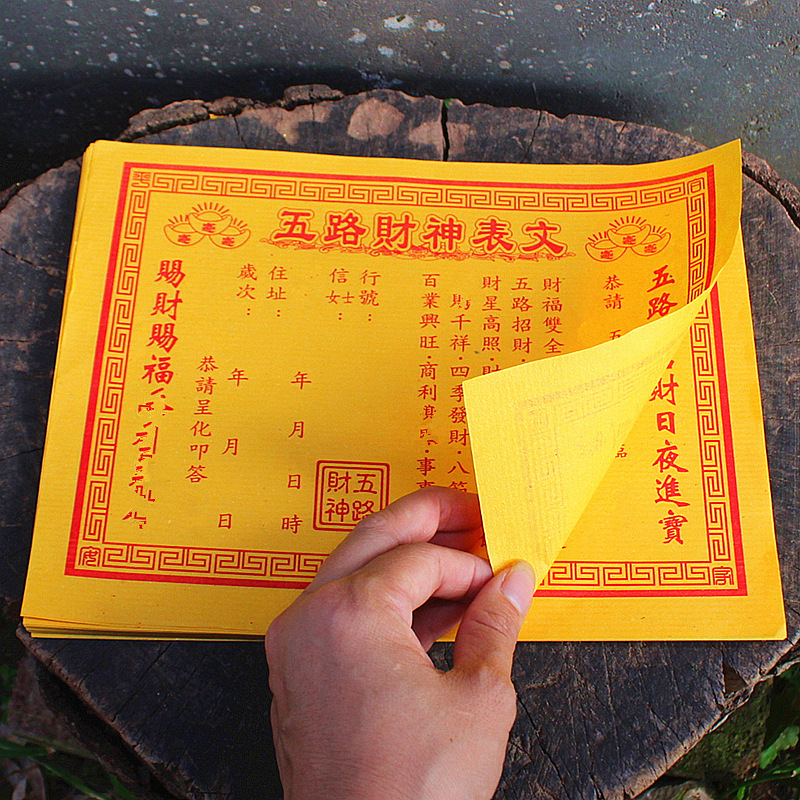 五路財神表文
五路
財日夜進寶
恭請
財福雙全
五路招財·
財星高照·財
千祥·四季發財·八
百業興旺·商利
·事事
行號：
信士女：
住址：
歲次：
年 月 日 時
年 月 日
恭請呈化叩答
賜財賜福
五路財神